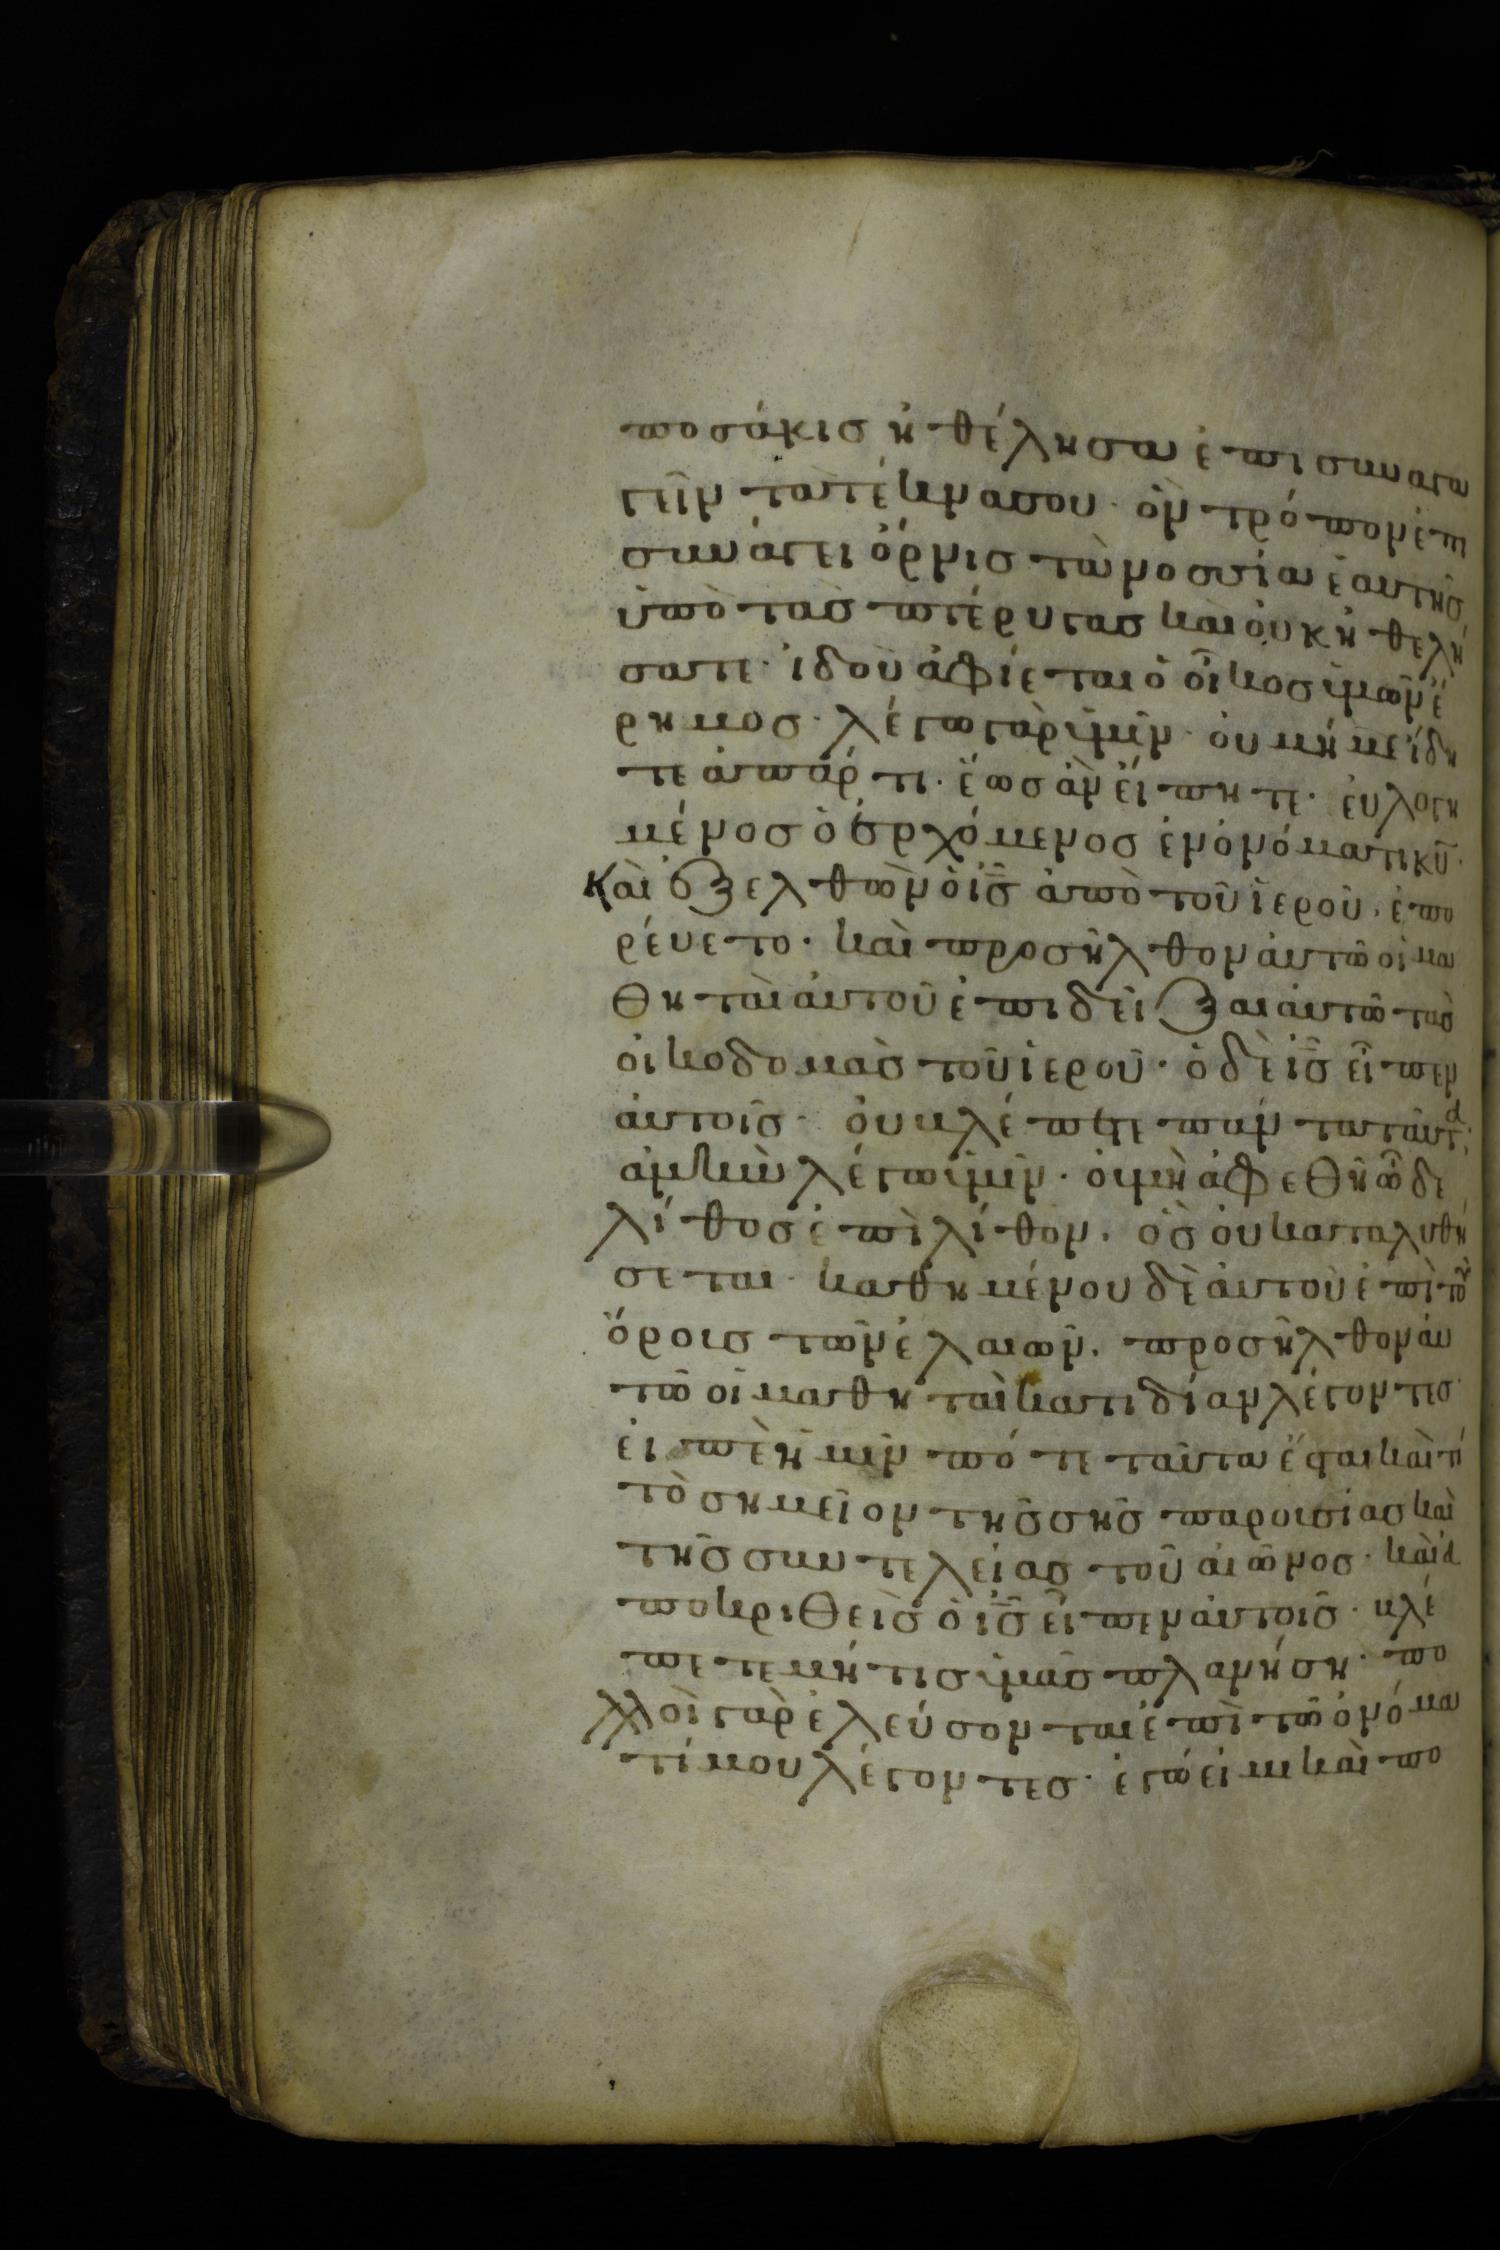 ποσάκισ ἠθέλησα ἐπισυναγα
γεῖν τὰ τέκνα σου· ὃν τρόπον ἐπι
συνάγει ὄρνισ τὰ νοσσία ἑαυτῆσ
ὑπὸ τὰσ πτέρυγασ καὶ οὐκ ἠθελή
σατε· ἰδοὺ ἀφίεται ὁ οἶκοσ ὑμῶν ἔ
ρημοσ· λέγω γὰρ ὑμῖν· οὐ μή με ἴδη
τε ἀπάρτι· ἕωσ ἂν εἴπητε· εὐλογη
μένοσ ὁ ἐρχόμενοσ ἐν ὀνόματι κῡ·
Καὶ ἐξελθὼν ὁ ἰ̅σ̅ ἀπὸ τοῦ ἱεροῦ· ἐπο
ρέυετο· καὶ προσῆλθον ἀυτῶ οἱ μα
θηταὶ ἀυτοῦ ἐπιδεῖξαι ἀυτῶ τὰσ
οἰκοδομὰσ τοῦ ἱεροῦ· ὁ δὲ ἰ̅σ̅ εἶπεν
ἀυτοῖσ· ὀυ βλέπετε πάντα ταῦτα·
ἀμὴν λέγω ὑμῖν· ὀυ μὴ ἀφεθῆ ὧδε
λίθοσ ἐπὶ λίθον· ὃσ ὀυ καταλυθή
σεται· καθημένου δὲ ἀυτοῦ ἐπὶ τοῦ
ὄρουσ τῶν ἐλαιῶν· προσῆλθον ἀυ
τῶ οἱ μαθηταὶ κατιδίαν λέγοντεσ·
εἰπὲ ἡμῖν πότε ταῦτα ἔσται καὶ τί
τὸ σημεῖον τῆσ σῆσ παρουσίασ καὶ
τῆσ συντελείασ τοῦ αἰῶνοσ· καὶ ἀ
ποκριθεὶσ ὁ ἰ̅σ̅ εἶπεν ἀυτοῖσ· βλέ
πετε μή τισ ὑμᾶσ πλανήση· πο
λλοὶ γὰρ ἐλεύσονται ἐπὶ τῶ ὀνόμα
τί μου λέγοντεσ· ἐγώ εἰμι καὶ πο